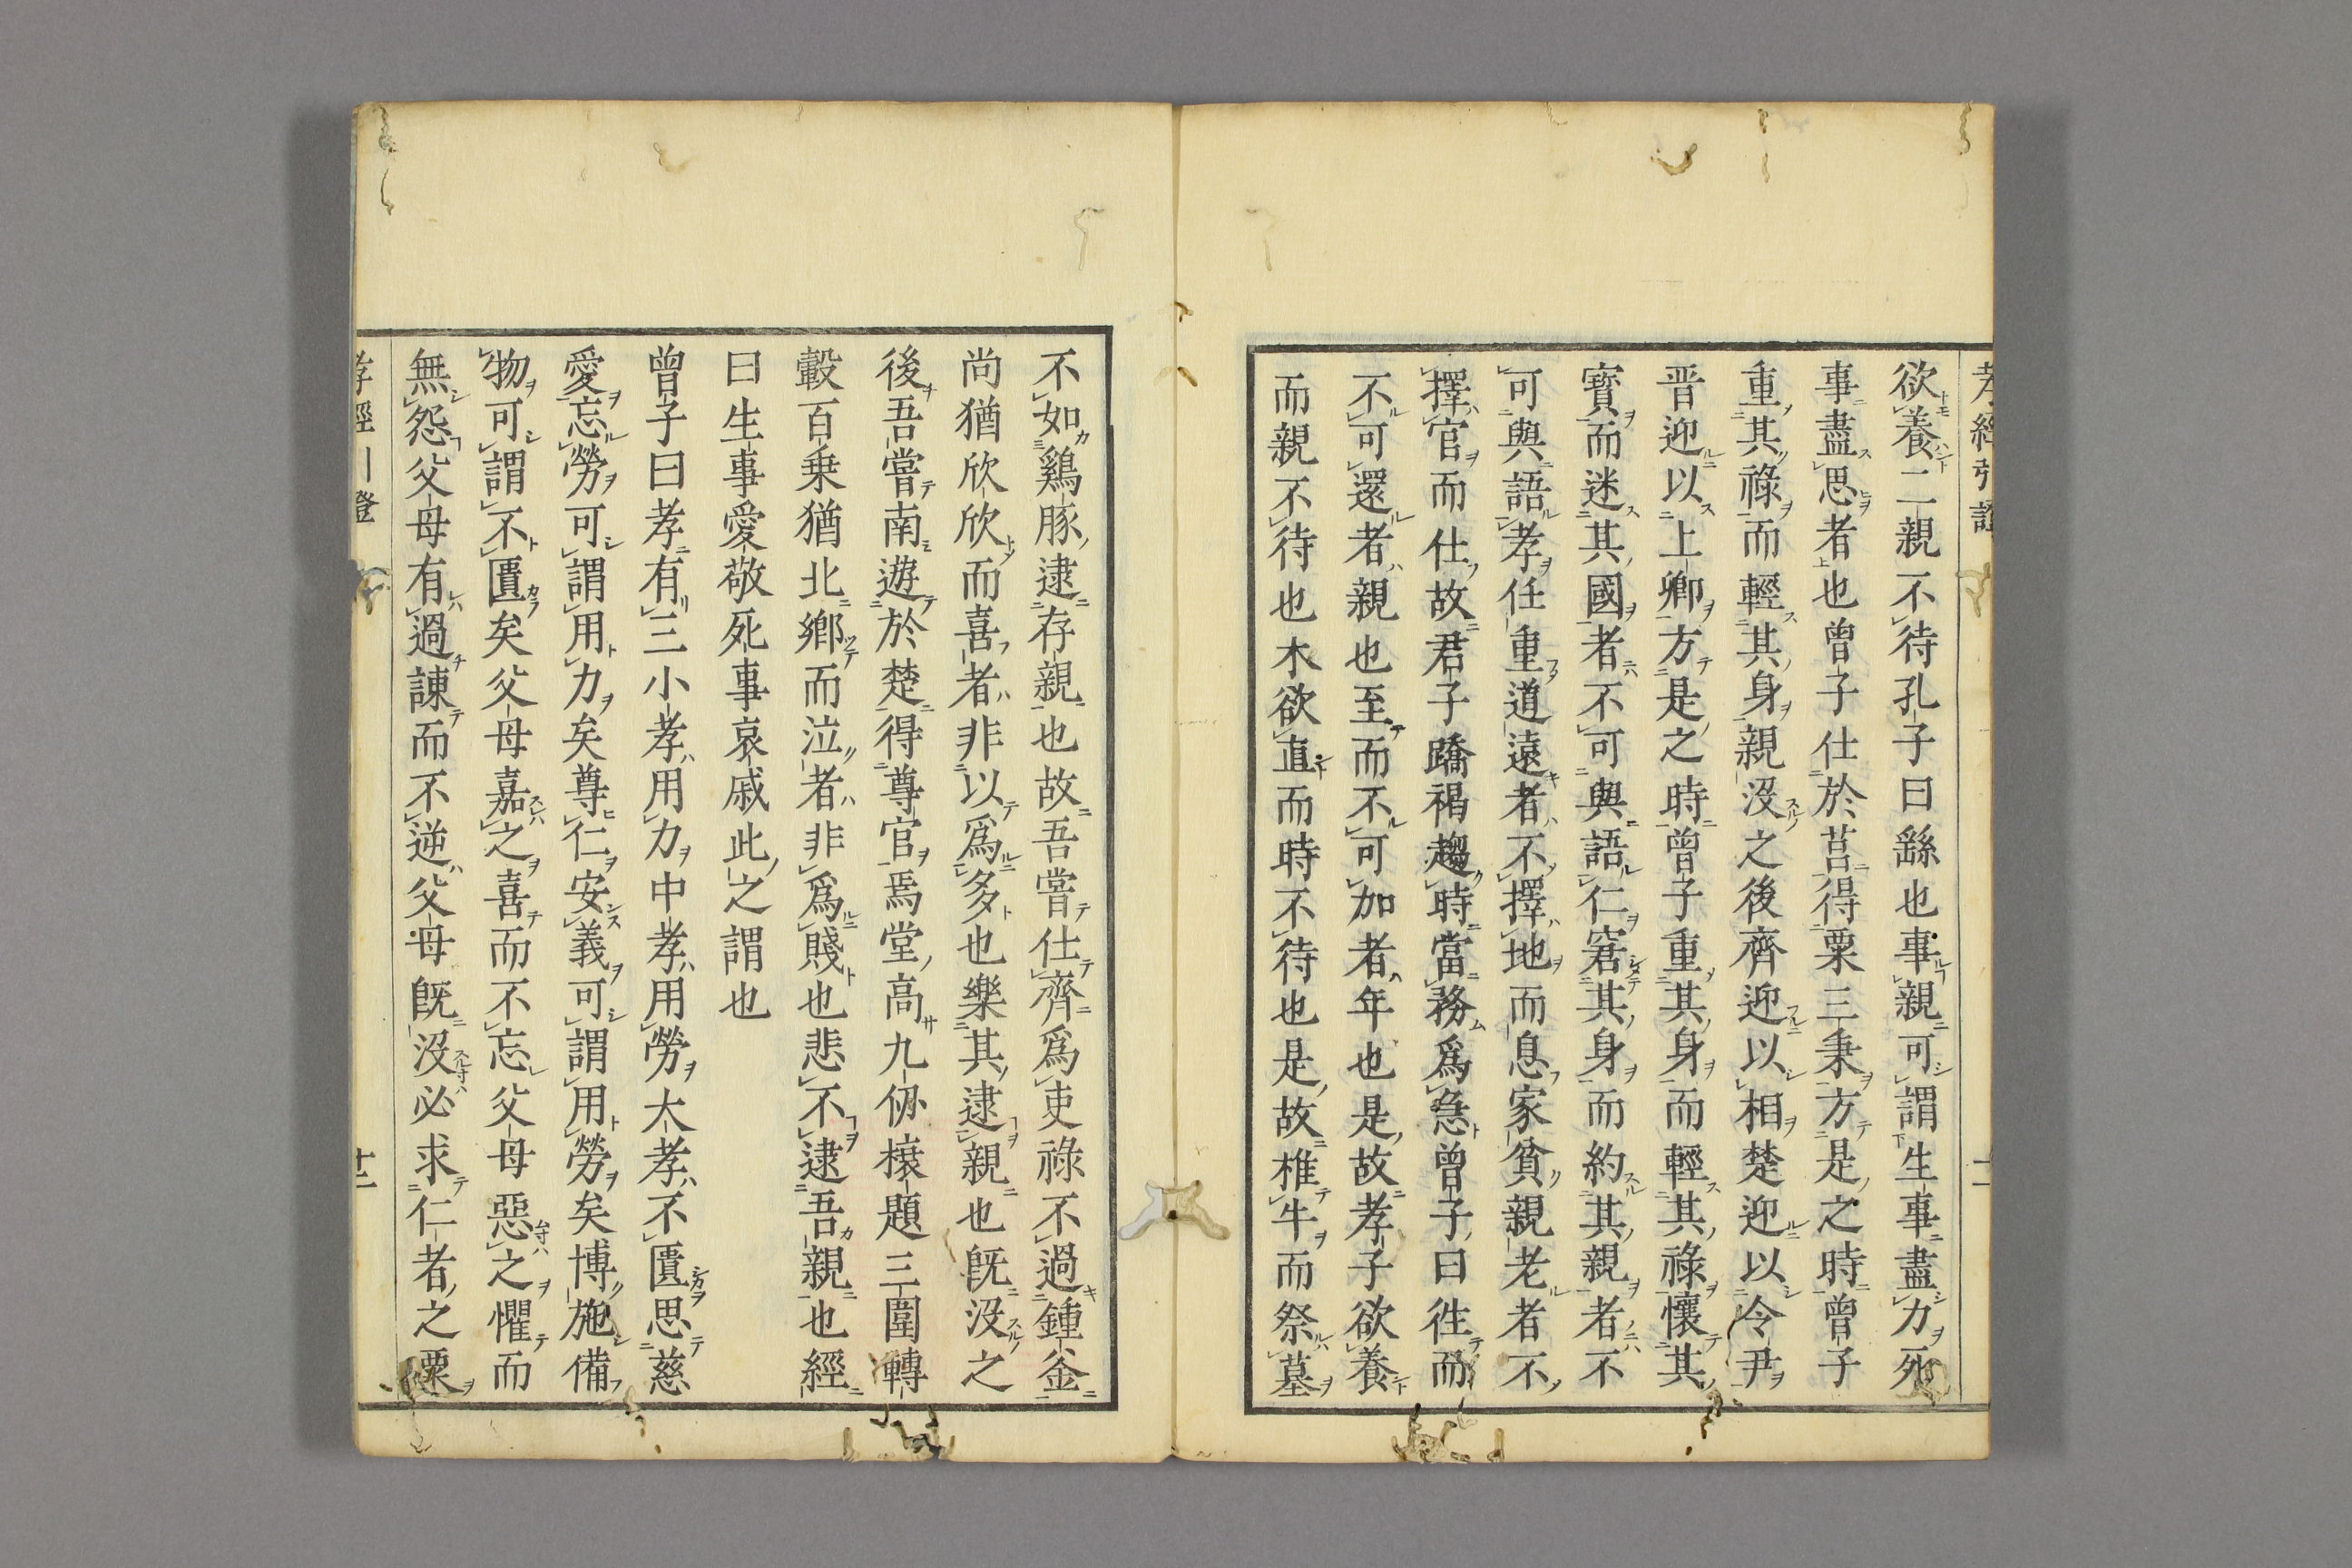 孝經引證
欲養二親不待孔子曰繇也事親可謂生事盡力死
事盡思者也曾子仕於莒得粟三秉方是之時曾子
重其祿而輕其身親没之後齊迎以相楚迎以令尹
晋迎以上卿方是之時曾子重其身而輕其祿懷其
寶而迷其國者不可與語仁窘其身而約其親者不
可與語孝任重道遠者不擇地而息家貧親老者不
擇官而仕故君子蹻褐趨時當務爲急曾子曰徃而
不可還者親也至而不可加者年也是故孝子欲養
而親不待也木欲直而時不待也是故椎牛而祭墓
不如鷄豚逮存親也故吾嘗仕齊爲吏祿不過鍾釜
尚猶欣欣而喜者非以爲多也樂其逮親也既没之
後吾嘗南遊於楚得尊官焉堂高九仞榱題三圍轉
轂百乗猶北鄉而泣者非爲賤也悲不逮吾親也經
曰生事愛敬死事哀戚此之謂也
曾子曰孝有三小孝用力中孝用勞大孝不匱思慈
愛忘勞可謂用力矣尊仁安義可謂用勞矣博施備
物可謂不匱矣父母嘉之喜而不忘父母惡之懼而
無怨父母有過諫而不逆父母既没必求仁者之粟
孝經引證
十二